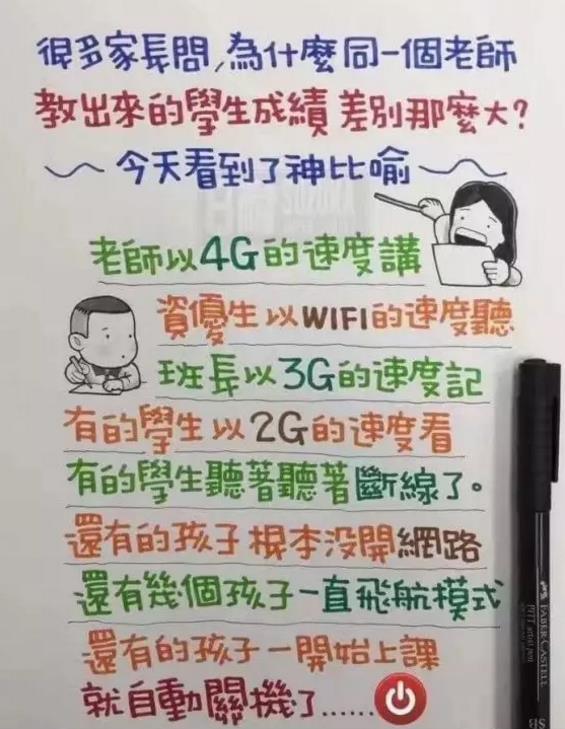 很多家長問,為什麼同一個老師
教出來的學生成績差別那麼大?
今天看到了神比喻
老師以4G的速度講
資優生以WIFI的速度聽
班長以3G的速度記
有的學生以2G的速度看
有的學生聽著聽著斷線了。
還有的孩子根本沒開網路
還有幾個孩子一直飛航模式
還有的孩子一開始上課
就自動關機了......
FABER-CASTELL
PITT artist pen
SB